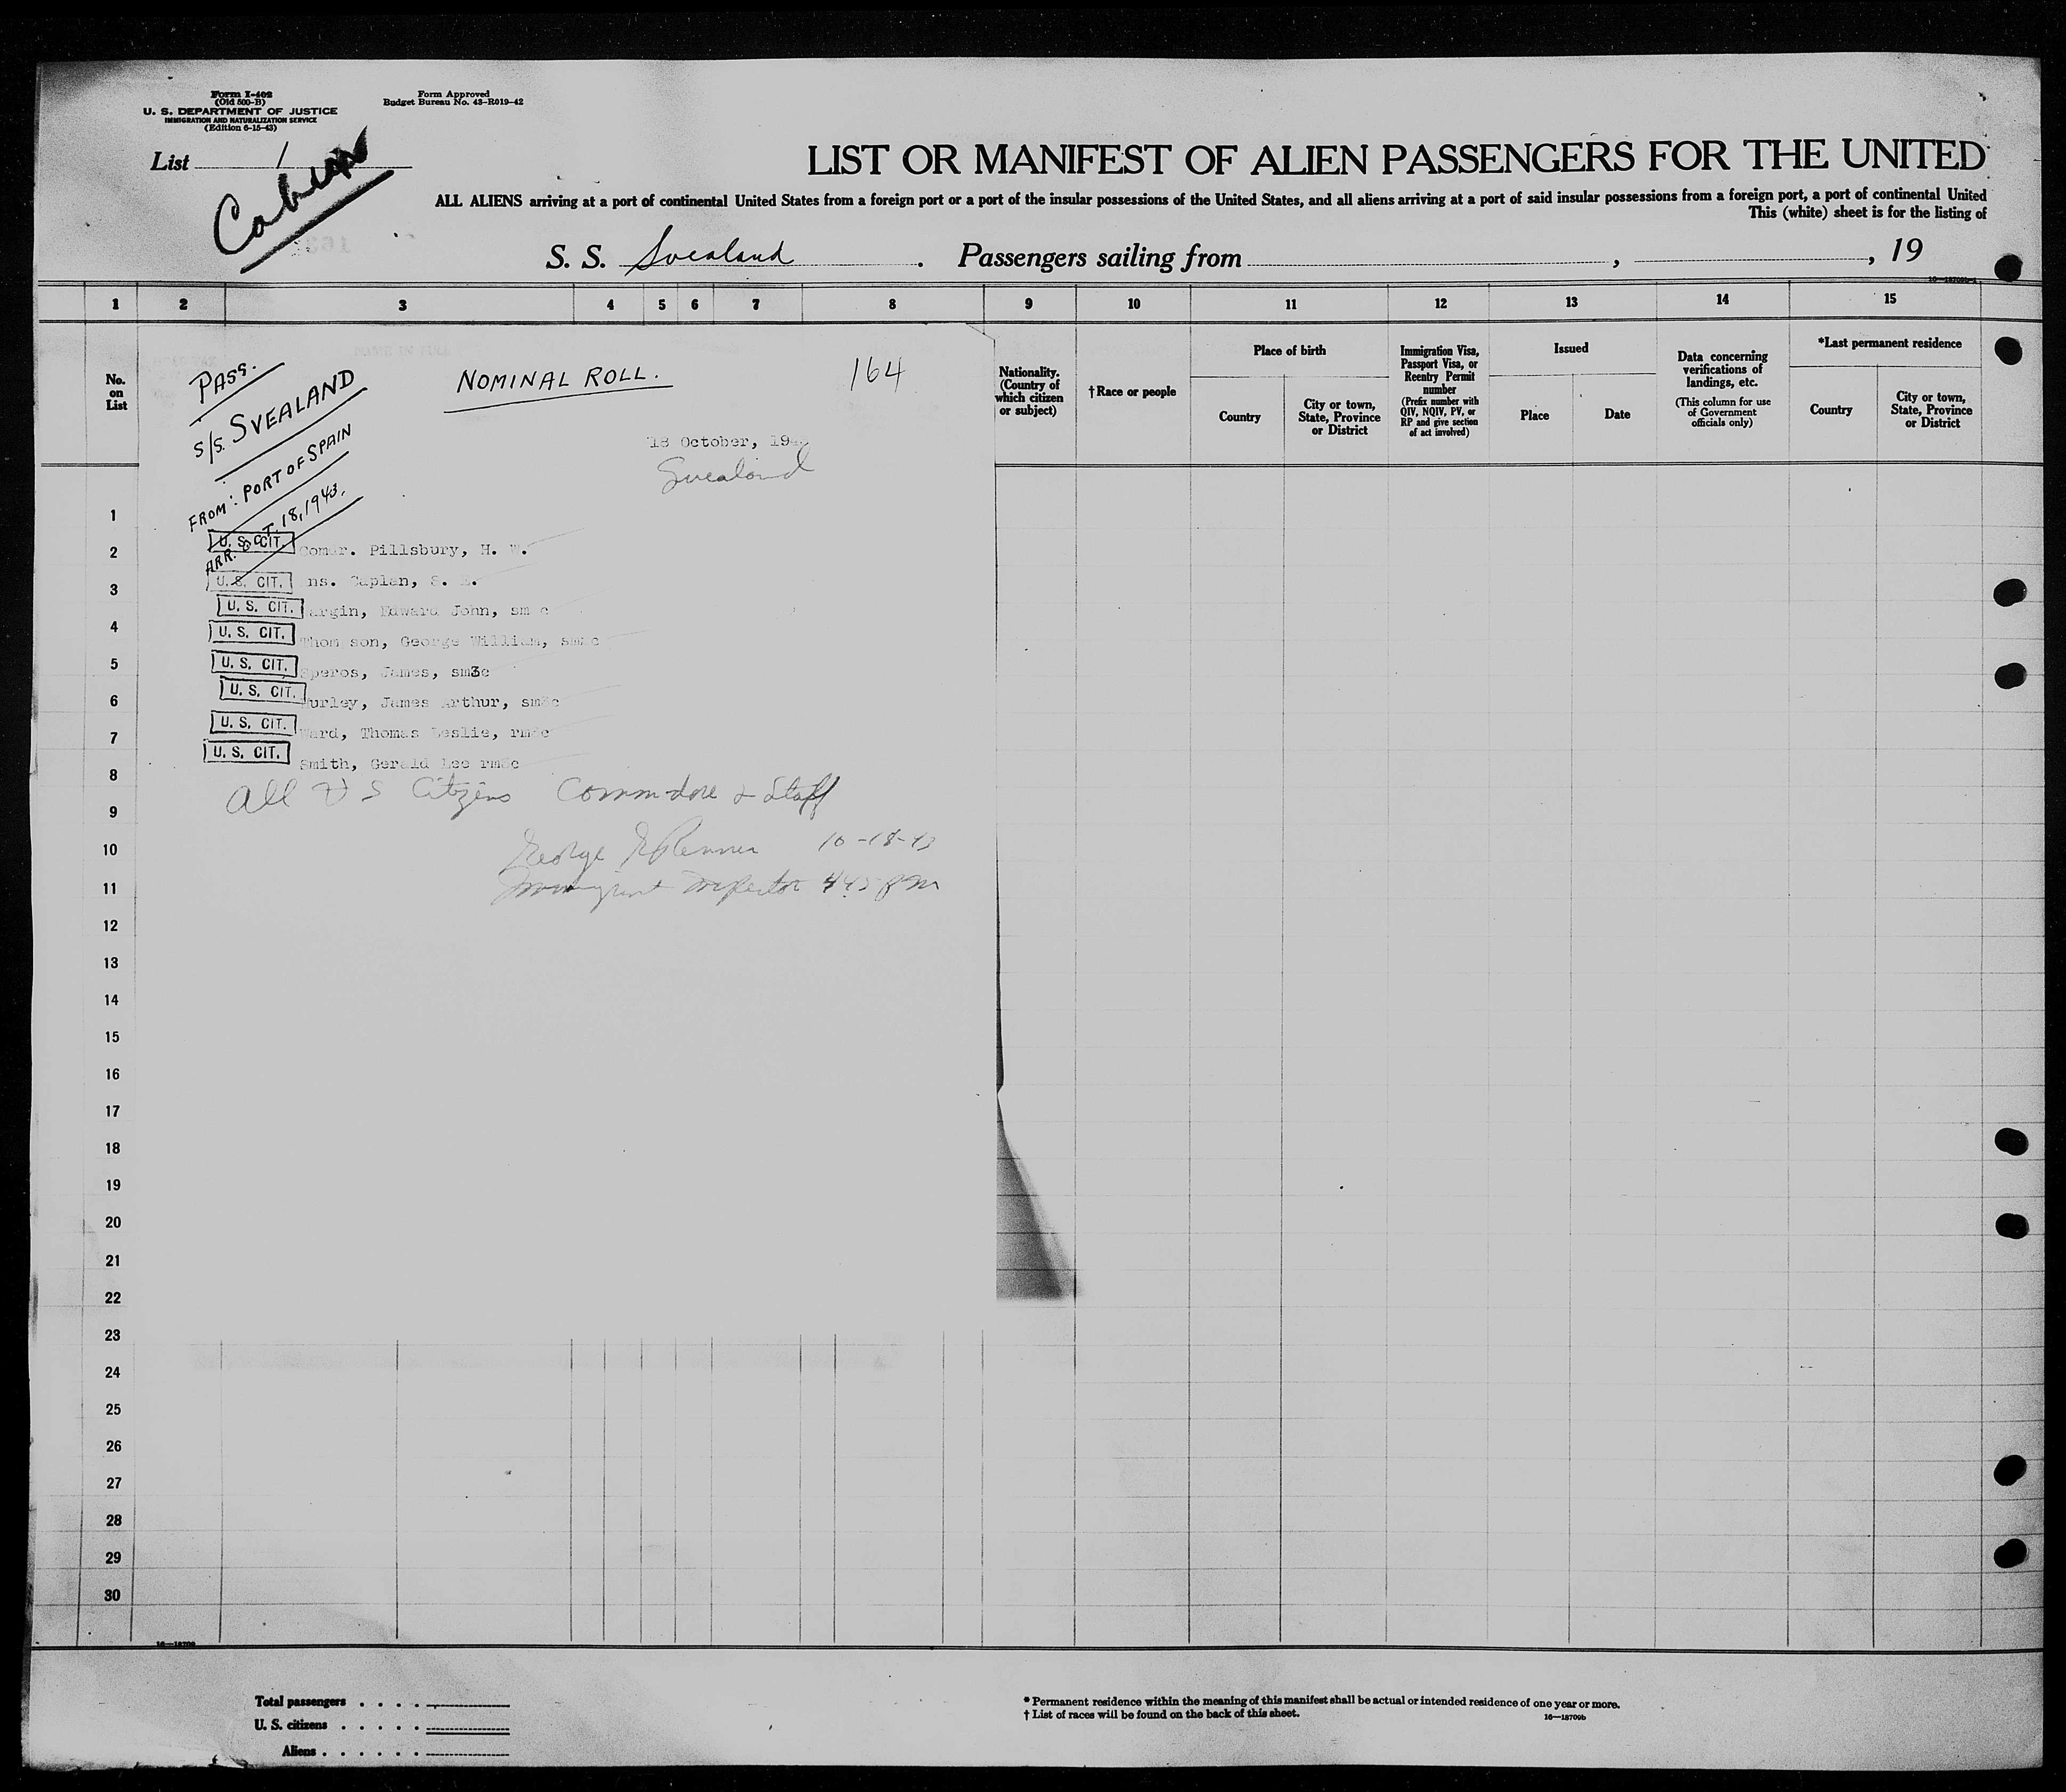 Form I-402
(Old 500-B)
U. S. DEPARTMENT OF JUSTICE
IMMIGRATION AND NATURALIZATION SERVICE
(Edition 6-15-43)
Form Approved
Budget Bureau No. 43-R019-42
List 1
LIST OR MANIFEST OF ALIEN PASSENGERS FOR THE UNITED
ALL ALIENS arriving at a port of continental United States from a foreign port or a port of the insular possessions of the United States, and all aliens arriving at a port of said insular possessions from a foreign port, a port of continental United
This (white) sheet is for the listing of
S. S. Svealand . Passengers sailing from , , 19
16—18709b-1
1 2 3 4 5 6 7 8 9 10 11 12 13 14 15
No.
on
List
Nationality.
(Country of
which citizen
or subject)
†Race or people
Place of birth
Country
City or town,
State, Province
or District
Immigration Visa,
Passport Visa, or
Reentry Permit
number
(Prefix number with
QIV, NQIV, PV, or
RP and give section
of act involved)
Issued
Place
Date
Data concerning
verifications of
landings, etc.
(This column for use
of Government
officials only)
*Last permanent residence
Country
City or town,
State, Province
or District
PASS.
S/S. SVEALAND
FROM: PORT OF SPAIN
ARR. OCT. 18, 1943.
NOMINAL ROLL.
164
18 October, 194
Svealand
U. S. CIT. Comdr. Pillsbury, H. W.
U. S. CIT. ns. Caplan, S.
U. S. CIT. argin, Edward John, sm c
U. S. CIT. Thom son, George William, sm c
U. S. CIT. Speros, James, sm3c
U. S. CIT. urley, James Arthur, sm3c
U. S. CIT. Ward, Thomas Leslie, rm3c
U. S. CIT. Smith, Gerald Lee rm3c
All U S Citizens Commodore & Staff
George 10-18-43
Immigrant Inspector 4 45 pm
1
2
3
4
5
6
7
8
9
10
11
12
13
14
15
16
17
18
19
20
21
22
23
24
25
26
27
28
29
30
16—18709
Total passengers . . . .
U. S. citizens . . . . .
Aliens . . . . . .
* Permanent residence within the meaning of this manifest shall be actual or intended residence of one year or more.
† List of races will be found on the back of this sheet.
16—18709b